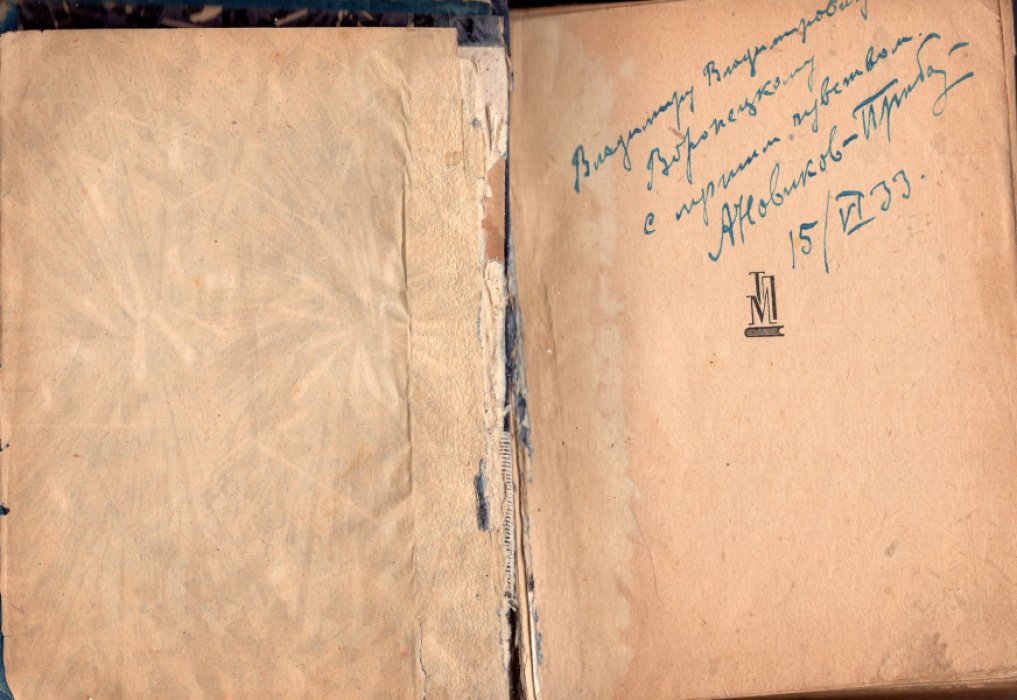 Владимиру Владимирович
Воронецкому
с лучшим чувством.
А Новиков-Прибой
15/VI 33.